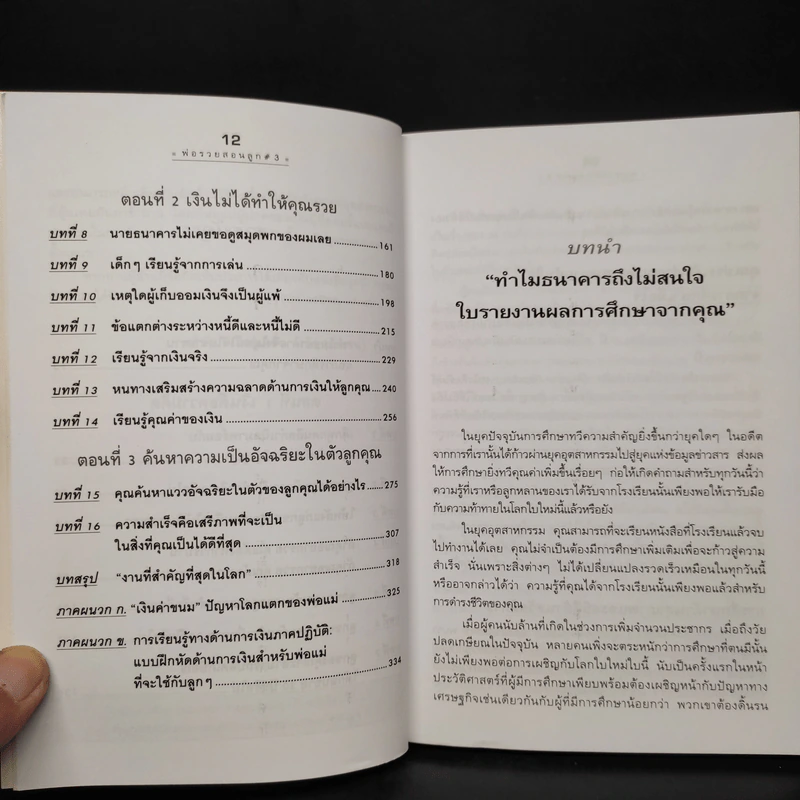 12
พ่อรวยสอนลูก#3
ตอนที่ 2 เงินไม่ได้ทำให้คุณรวย
บทที่ 8 นายธนาคารไม่เคยขอดูสมุดพกของผมเลย 161
บทที่ 9 เด็กๆ เรียนรู้จากการเล่น 180
บทที่ 10 เหตุใดผู้เก็บออมเงินจึงเป็นผู้แพ้ 198
บทที่ 11 ข้อแตกต่างระหว่างหนี้ดีและหนี้ไม่ดี 215
บทที่ 12 เรียนรู้จากเงินจริง 229
บทที่ 13 หนทางเสริมสร้างความฉลาดด้านการเงินให้ลูกคุณ 240
บทที่ 14 เรียนรู้คุณค่าของเงิน 256
ตอนที่ 3 ค้นหาความเป็นอัจฉริยะในตัวลูกคุณ
บทที่ 15 คุณค้นหาแววอัจฉริยะในตัวของลูกคุณได้อย่างไร 275
บทที่ 16 ความสำเร็จคือเสรีภาพที่จะเป็น
ในสิ่งที่คุณเป็นได้ดีที่สุด 307
บทสรุป “งานที่สำคัญที่สุดในโลก” 318
ภาคผนวก ก. “เงินค่าขนม” ปัญหาโลกแตกของพ่อแม่ 325
ภาคผนวก ข. การเรียนรู้ทางด้านการเงินภาคปฏิบัติ:
แบบฝึกหัดด้านการเงินสำหรับพ่อแม่
ที่จะใช้กับลูกๆ 334
บทนำ
“ทำไมธนาคารถึงไม่สนใจ
ใบรายงานผลการศึกษาจากคุณ”
ในยุคปัจจุบันการศึกษาทวีความสำคัญยิ่งขึ้นกว่ายุคใดๆ ในอดีต
จากการที่เรานั้นได้ก้าวผ่านยุคอุตสาหกรรมไปสู่ยุคแห่งข้อมูลข่าวสาร ส่งผล
ให้การศึกษายิ่งทวีคุณค่าเพิ่มขึ้นเรื่อยๆ ก่อให้เกิดคำถามสำหรับทุกวันนี้ว่า
ความรู้ที่เราหรือลูกหลานของเราได้รับจากโรงเรียนนั้นเพียงพอให้เรารับมือ
กับความท้าทายในโลกใบใหม่นี้แล้วหรือยัง
ในยุคอุตสาหกรรม คุณสามารถที่จะเรียนหนังสือที่โรงเรียนแล้วจบ
ไปทำงานได้เลย คุณไม่จำเป็นต้องมีการศึกษาเพิ่มเติมเพื่อจะก้าวสู่ความ
สำเร็จ นั่นเพราะสิ่งต่างๆ ไม่ได้เปลี่ยนแปลงรวดเร็วเหมือนในทุกวันนี้
หรืออาจกล่าวได้ว่า ความรู้ที่คุณได้จากโรงเรียนนั้นเพียงพอแล้วสำหรับ
การดำรงชีวิตของคุณ
เมื่อผู้คนนับล้านที่เกิดในช่วงการเพิ่มจำนวนประชากร เมื่อถึงวัย
ปลดเกษียณในปัจจุบัน หลายคนเพิ่งจะตระหนักว่าการศึกษาที่ตนมีนั้น
ยังไม่เพียงพอต่อการเผชิญกับโลกใบใหม่ใบนี้ นับเป็นครั้งแรกในหน้า
ประวัติศาสตร์ที่ผู้มีการศึกษาเพียบพร้อมต้องเผชิญหน้ากับปัญหาทาง
เศรษฐกิจเช่นเดียวกันกับผู้ที่มีการศึกษาน้อยกว่า พวกเขาต้องดิ้นรน